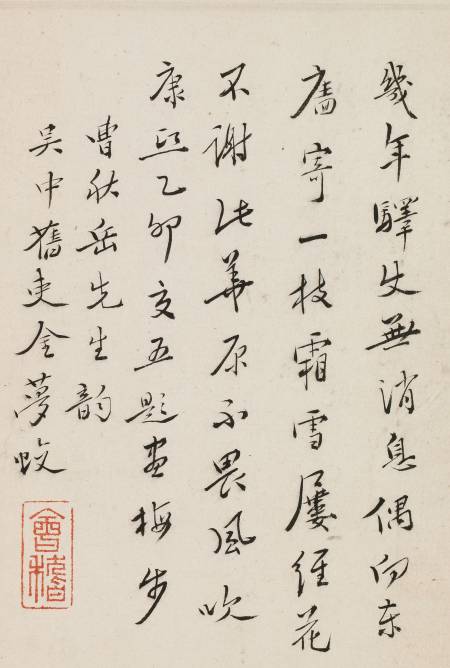 幾年驛使無消息偶向東
廬寄一枝霜雪屢經花
不謝此華原不畏風吹
康熙乙卯夏五題畫梅步
曹秋岳先生韵
吳中舊吏金夢蛟
會稽